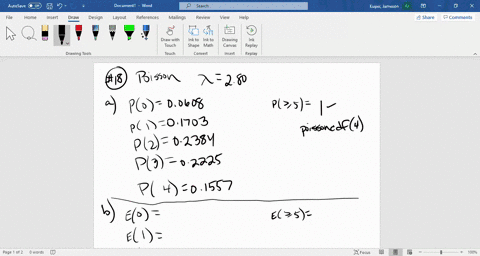 AutoSave Off
Document1 - Word
Search
Kuper, Jameson
File Home Insert Draw Design Layout References Mailings Review View Help
Share Comments
Draw with Touch
Ink to Shape
Ink to Math
Drawing Canvas
Ink Replay
Drawing Tools Convert Insert Replay
#18 Poisson λ = 2.80
a) P(0) = 0.0608 P(≥5) = 1 -
P(1) = 0.1703 poissoncdf(4)
P(2) = 0.2384
P(3) = 0.2225
P(4) = 0.1557
b) E(0) = E(≥5) =
E(1) =
Page 1 of 2 0 words Focus